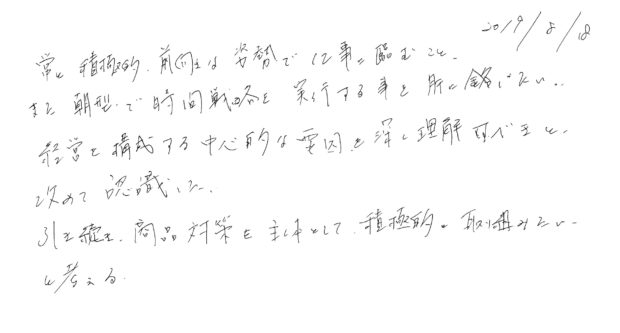 2019/8/18
常に積極的、前向きな姿勢で仕事に臨むこと。
また朝型で時間戦略を実行する事を肝に銘じたい。
経営を構成する中心的な要因を深く理解すべきと、
改めて認識した。
引き続き、商品対策を主体として、積極的に取り組みたい
と考える。